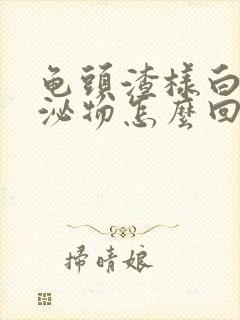 龟頭渣樣白
泌物怎麼回
掃晴娘